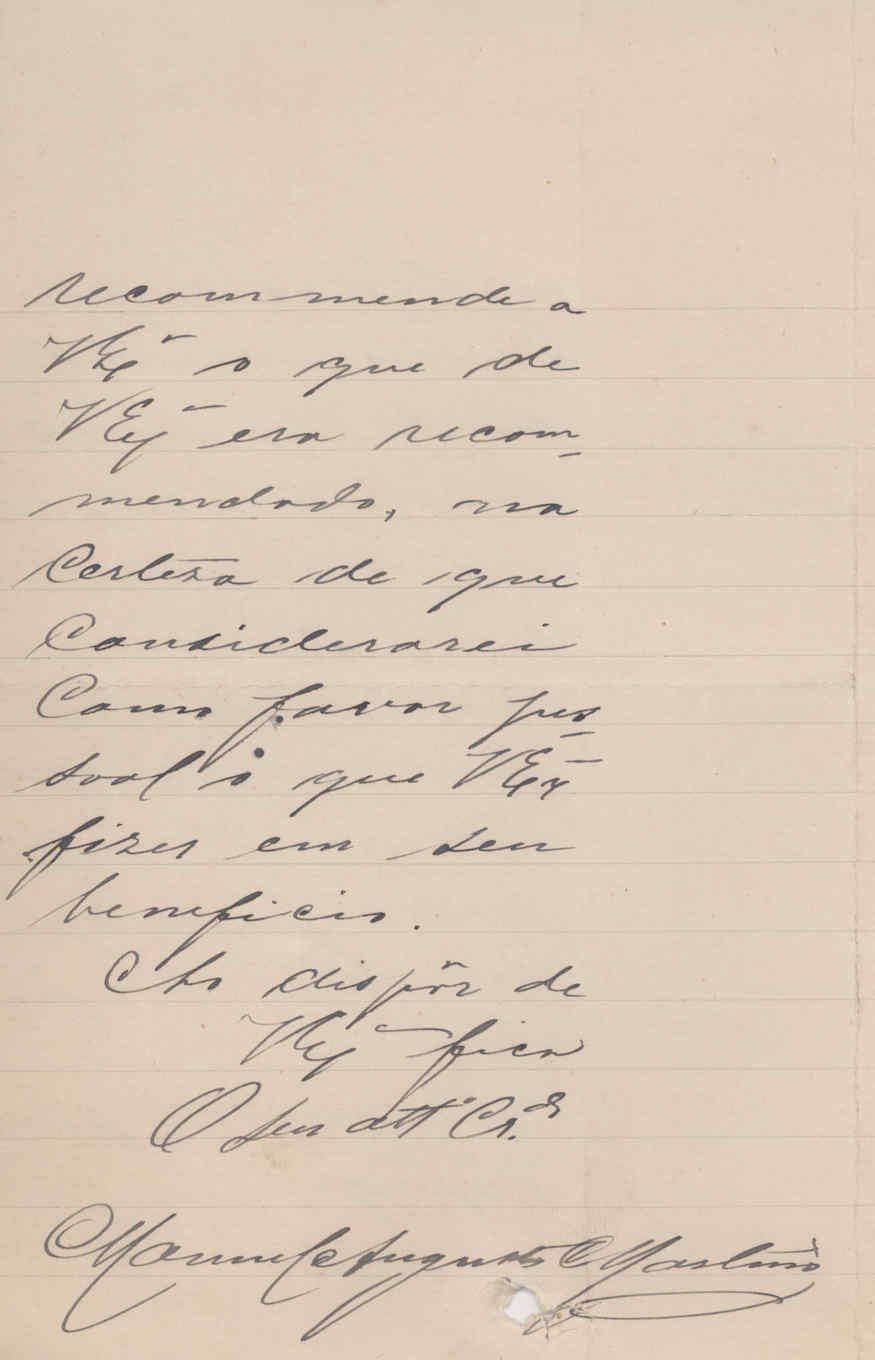 recommende a
VExª o que de
VExª era recom-
mendado, na
Certeza de que
Considerarei
Como favor pes-
soal o que VExª
fizer em seu
beneficio.
Ao dispôr de
VExª fica
O seu attº Cr.do
Manuel Augusto Martins